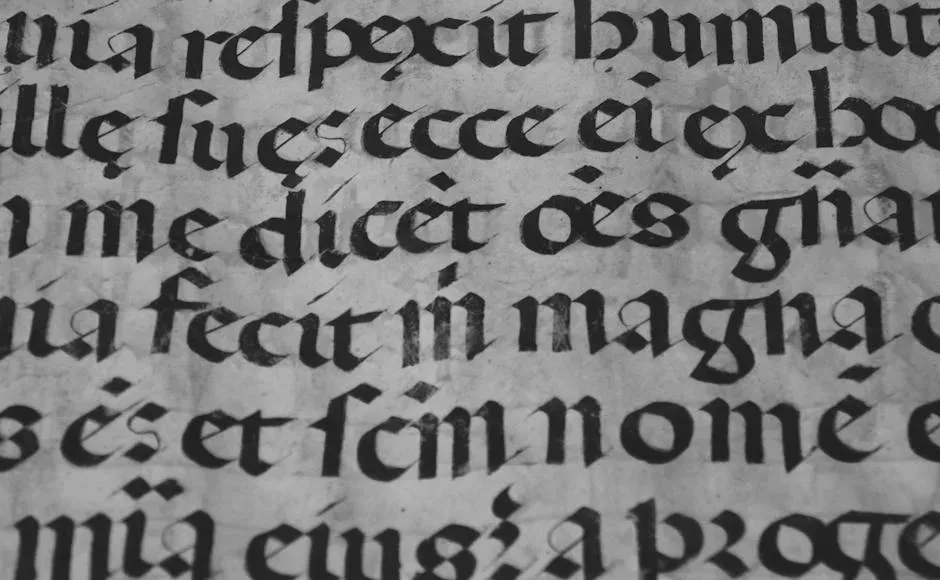 uia respexit humilit
illę suęs ecce ei ex hoc
me dicėt oės gn̈a
uia fecit iṅ magna
s ės et scı̇m nomē e
mı̈a eiusꝫ a proge